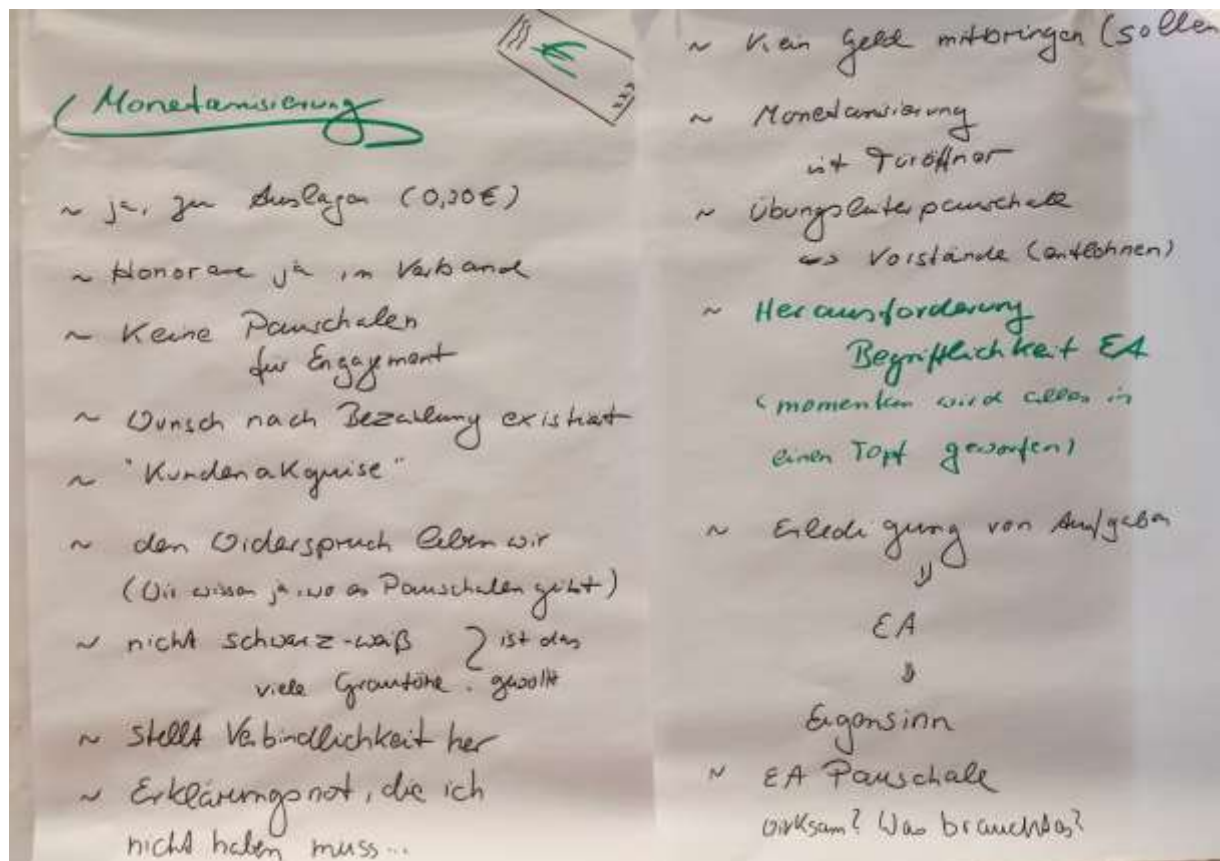 €
Monetarisierung
~ ja, zu Auslagen (0,30€)
~ Honorare ja im Verband
~ Keine Pauschalen
für Engagement
~ Wunsch nach Bezahlung existiert
~ "Kundenakquise"
~ den Widerspruch leben wir
(Wir wissen ja, wo es Pauschalen gibt)
~ nicht schwarz-weiß } ist das
viele Grautöne. gewollt
~ stellt Verbindlichkeit her
~ Erklärungsnot, die ich
nicht haben muss...
~ Kein Geld mitbringen (sollen
~ Monetarisierung
ist Türöffner
~ Übungsleiterpauschale
↔ Vorstände (entlohnen)
~ Herausforderung
Begrifflichkeit EA
(momentan wird alles in
einen Topf geworfen)
~ Erledigung von Aufgaben
⇓
EA
⇓
Eigensinn
~ EA Pauschale
wirksam? Was braucht es?